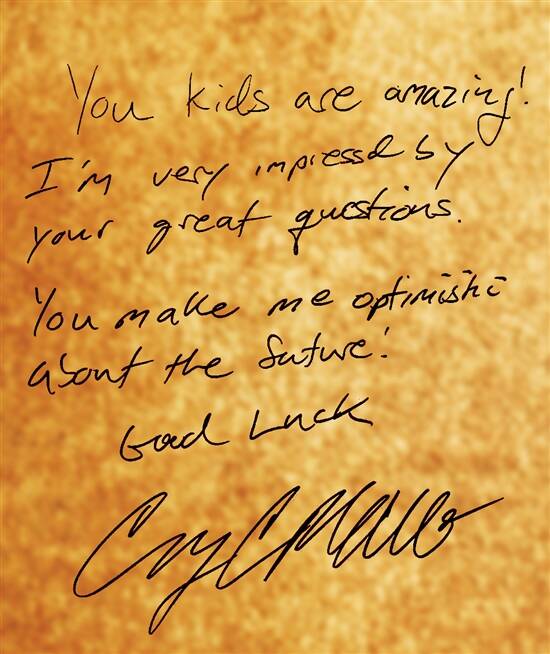 You kids are amazing!
I'm very impressd by
your great questions.
You make me optimistic
about the future!
Good Luck